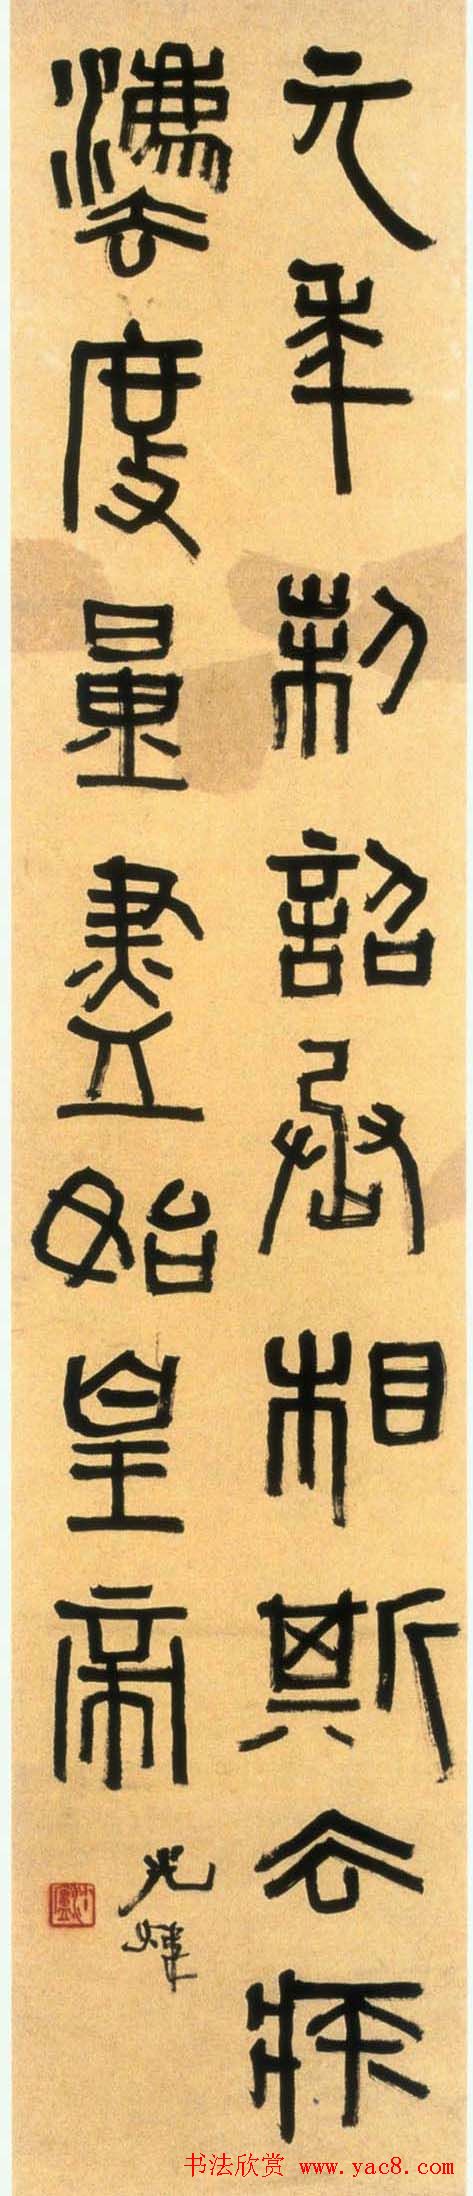 元年制詔丞相斯去疾
灋度量盡始皇帝
光煒
书法欣赏 www.yac8.com